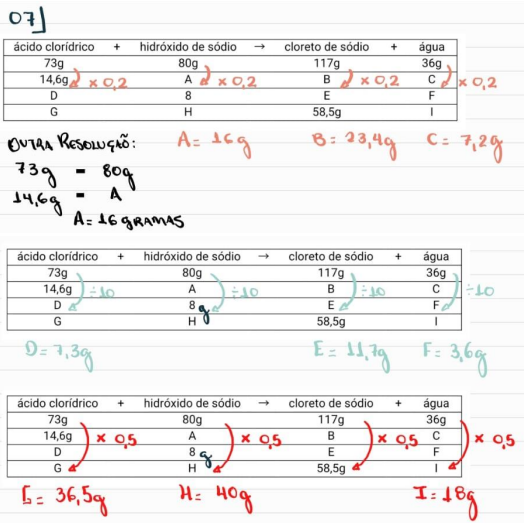 07]
ácido clorídrico + hidróxido de sódio → cloreto de sódio + água
73g 80g 117g 36g
14,6g x 0,2 A x 0,2 B x 0,2 C x 0,2
D 8 E F
G H 58,5g I
OUTRA RESOLUÇÃO: A= 16g B= 23,4g C= 7,2g
73g - 80g
14,6g - A
A= 16 GRAMAS
ácido clorídrico + hidróxido de sódio → cloreto de sódio + água
73g 80g 117g 36g
14,6g ÷10 A ÷10 B ÷10 C ÷10
D 8 g E F
G H 58,5g I
D= 7,3g E= 11,7g F= 3,6g
ácido clorídrico + hidróxido de sódio → cloreto de sódio + água
73g 80g 117g 36g
14,6g x 0,5 A x 0,5 B x 0,5 C x 0,5
D 8 g E F
G H 58,5g I
G= 36,5g H= 40g I= 18g